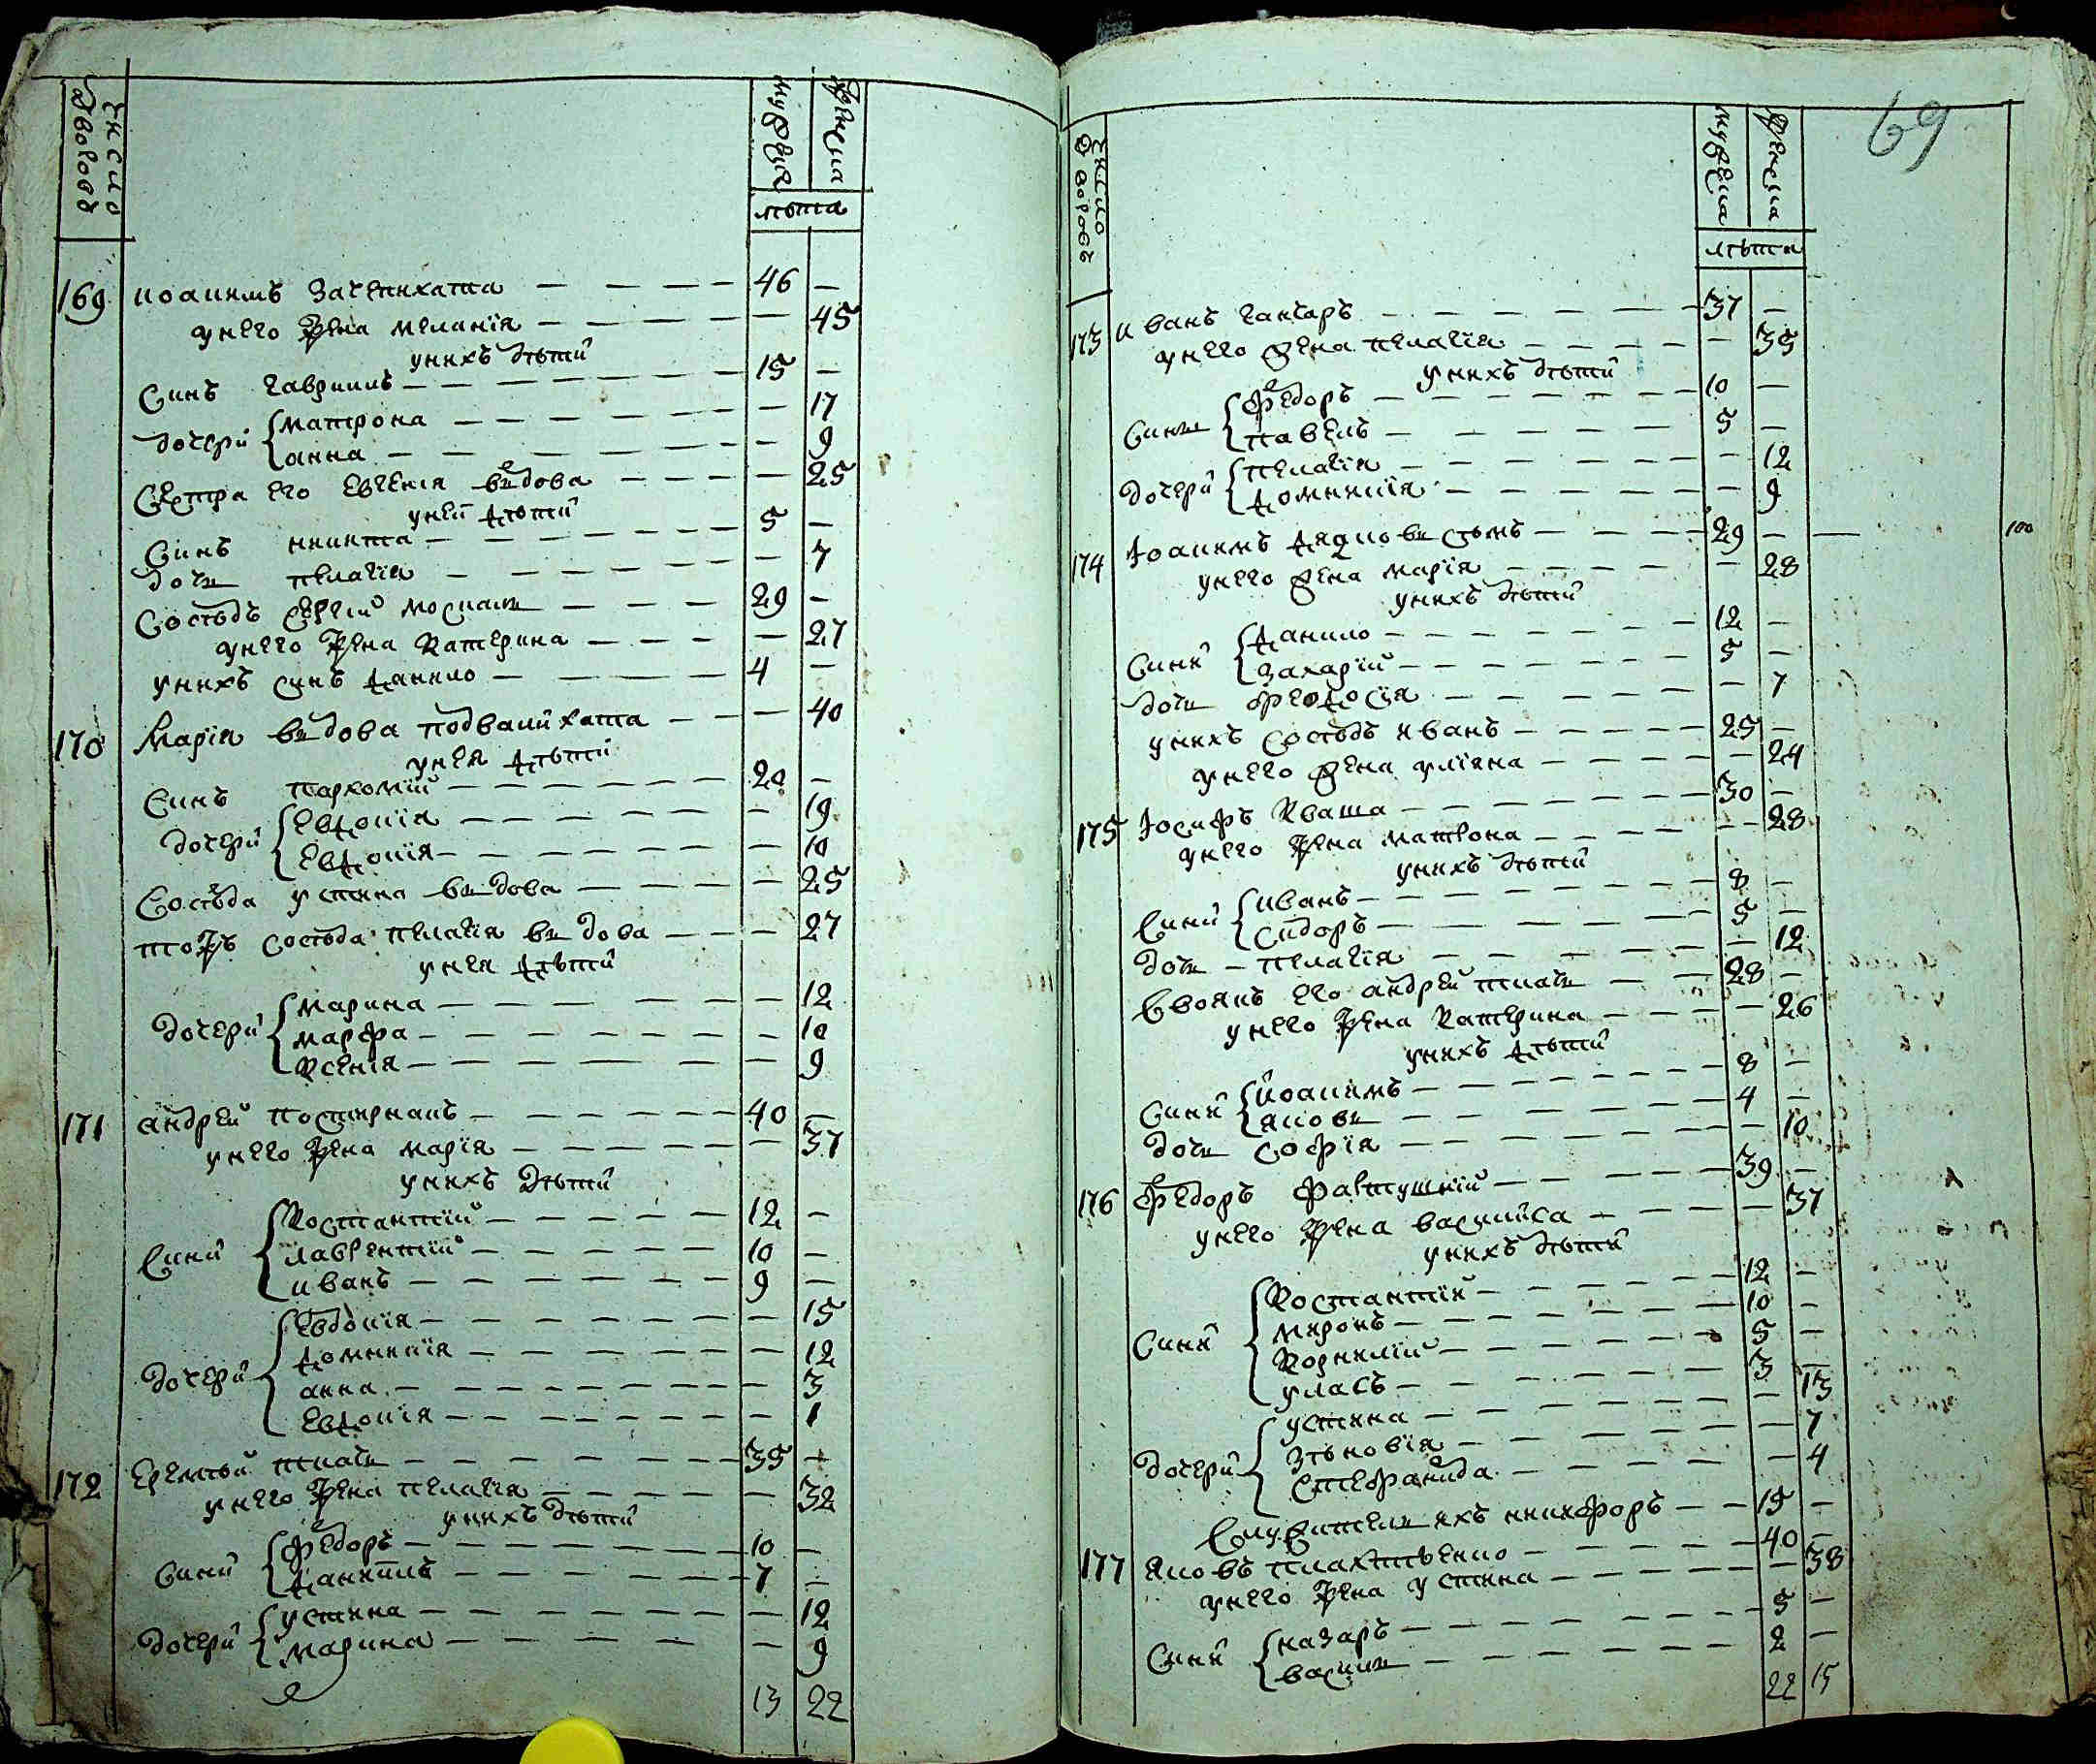 число дворовъ
мужеска
женска
лѣта
169 иоакимъ Зачепихата — 46 —
унего жена меланія — — 45
унихъ дѣти
Синъ гавриилъ — 15 —
дочери матрона — — 17
анна — — 9
Сестра его Евгенія вдова — — 25
уней дѣти
Синъ никита — 5 —
дочь пелагія — — 7
Сосѣдъ Сергій — 29 —
унего жена Катерина — — 27
унихъ синъ данило — 4 —
170 Марія вдова подвалихата — — 40
унея дѣти
Синъ пархомій — 20 —
дочери Евдокія — — 19
Евдокія — — 10
Сосѣда устина вдова — — 25
тожъ сосѣда пелагія вдова — — 27
унея дѣти
дочери марина — — 12
марфа — — 10
Ксенія — — 9
171 андрей постернакъ — 40 —
унего жена марія — — 37
унихъ дѣти
Сини Костантій — 12 —
лаврентій — 10 —
иванъ — 9 —
дочери Евдокія — — 15
домникія — — 12
анна — — 3
Евдокія — — 1
172 Еремѣй ткачь — 35 —
унего жена пелагія — — 32
унихъ дѣти
Сини федоръ — 10 —
даниилъ — 7 —
дочери устина — — 12
марина — — 9
13 22
69
число дворовъ
мужеска
женска
лѣта
173 иванъ ганчаръ — 37 —
унего жена пелагія — — 35
унихъ дѣти
Сини федоръ — 10 —
павелъ — 5 —
дочери пелагія — — 12
домникія — — 9
174 Іоакимъ — 29 — — 100
унего жена марія — — 28
унихъ дѣти
Сини данило — 12 —
Захарій — 5 —
дочь феодосія — — 7
унихъ сосѣдъ иванъ — 25 —
унего жена уліяна — — 24
175 Іосифъ Кваша — 30 —
унего жена матрона — — 28
унихъ дѣти
Сини иванъ — 8 —
Сидоръ — 5 —
дочь — пелагія — — 12
Своякъ его андрей ткачь — 28 —
унего жена Катерина — — 26
унихъ дѣти
Сини йоакимъ — 8 —
яковь — 4 —
дочь Софія — — 10
176 федоръ — 39 —
унего жена василиса — — 37
унихъ дѣти
Сини Костантій — 12 —
миронъ — 10 —
Корнилій — 5 —
уласъ — 3 —
дочери устина — — 13
Зѣновія — — 7
Стефанида — — 4
Служитель ихъ никифоръ — 15 —
177 Яковъ плахтѣенко — 40 —
унего жена устина — — 38
Сини назаръ — 5 —
василь — 2 —
22 15